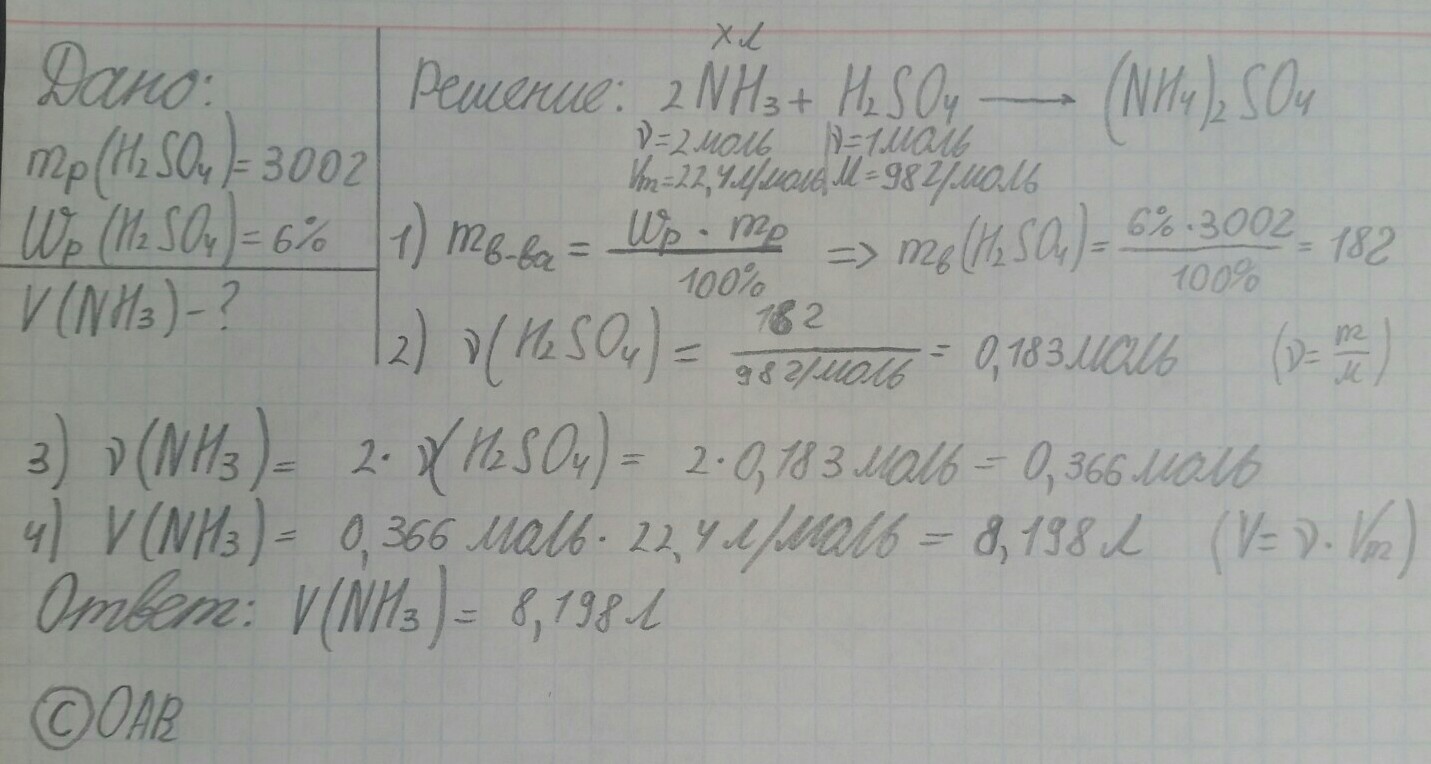 Дано:
mр(H₂SO₄)=300г
Wр(H₂SO₄)=6%
V(NH₃)-?
x л
Решение: 2NH₃ + H₂SO₄ ⟶ (NH₄)₂SO₄
ν=2моль ν=1моль
Vm=22,4л/моль M=98г/моль
1) mв-ва = Wр · mр / 100% => mв(H₂SO₄)= 6%·300г / 100% = 18г
2) ν(H₂SO₄) = 18г / 98г/моль = 0,183моль (ν= m/M)
3) ν(NH₃)= 2·ν(H₂SO₄)= 2·0,183моль = 0,366моль
4) V(NH₃)= 0,366 моль· 22,4л/моль = 8,198л (V= ν·Vm)
Ответ: V(NH₃)= 8,198л
©OAB